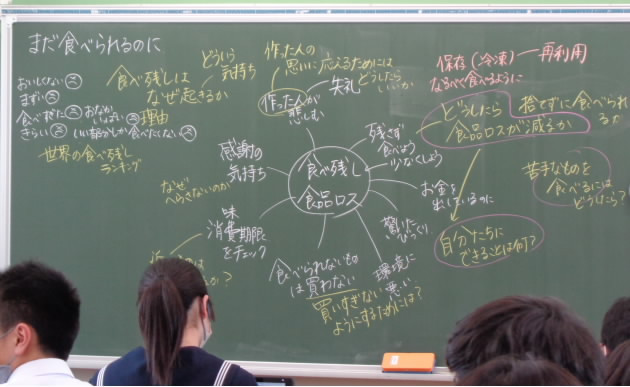 まだ食べられるのに
おいしくない
まずい
食べすぎた
おなかいっぱい
きらい
いい部分しか食べたくない
食べ残しは
なぜ起きるか
理由
世界の食べ残し
ランキング
どういう
気持ち
作った人の
思いに応えるためには
どうしたら
いいか
失礼
作った人が
悲しむ
保存(冷凍)ー再利用
なるべく食べるように
どうしたら
食品ロスが減るか
捨てずに食べられ
るか
残さず
食べよう
少なくしよう
感謝の
気持ち
食べ残し
食品ロス
なぜ
へらさないのか
お金を
苦手なものを
食べるには
どうしたら?
味
消費期限
をチェック
驚いた
びっくり
自分たちに
できることは何?
食べられないもの
は買わない
環境に
悪い
買いすぎない
ようにするためには?